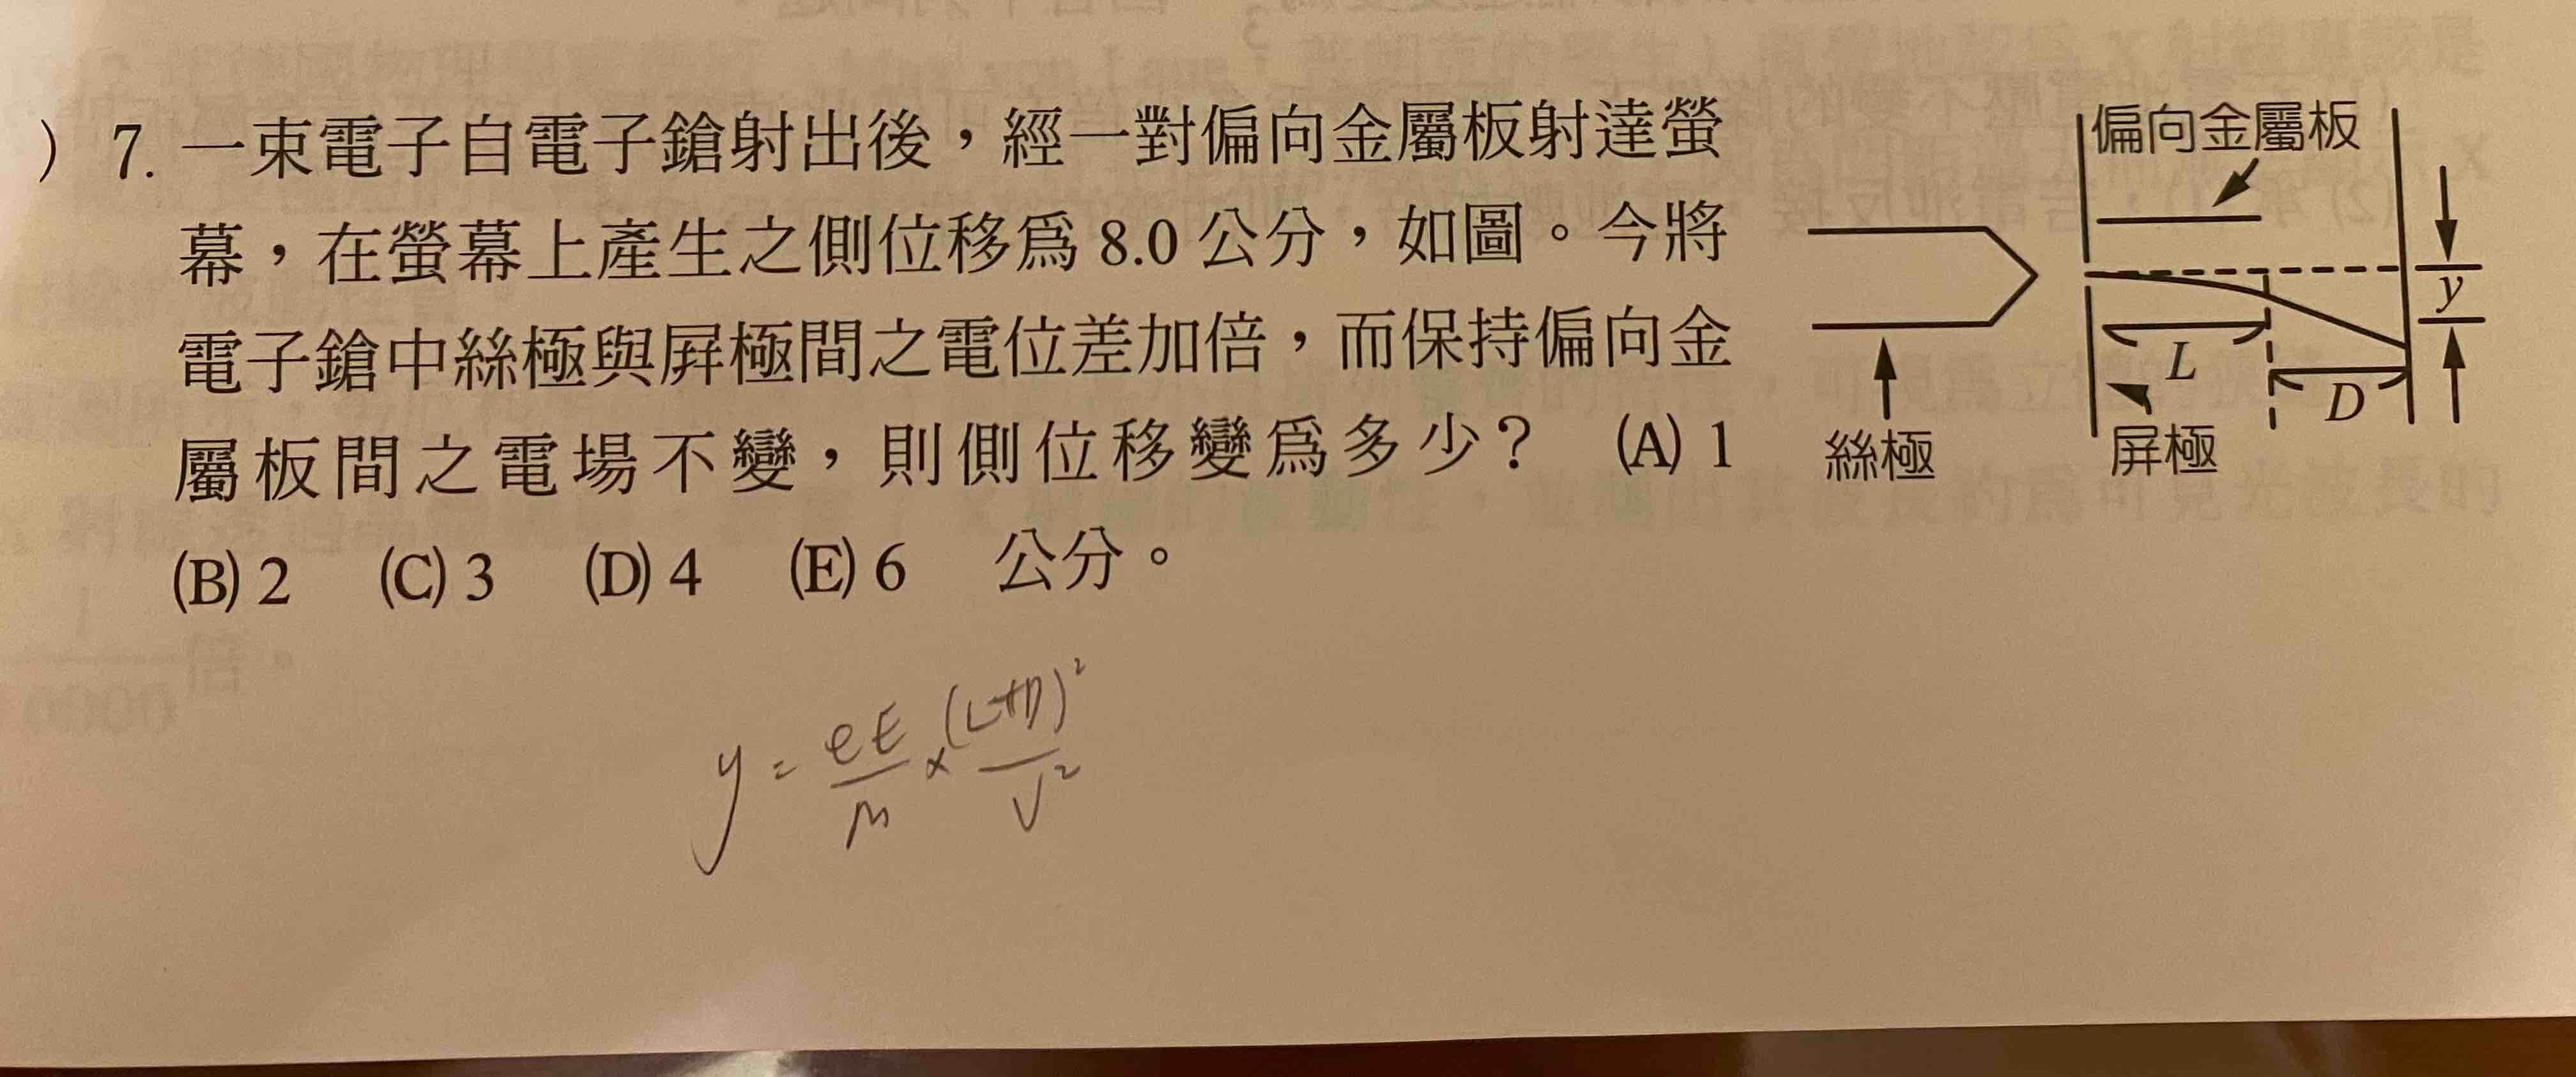 ) 7. 一束電子自電子鎗射出後，經一對偏向金屬板射達螢
幕，在螢幕上產生之側位移為 8.0 公分，如圖。今將
電子鎗中絲極與屛極間之電位差加倍，而保持偏向金
屬板間之電場不變，則側位移變為多少？ (A) 1
(B) 2 (C) 3 (D) 4 (E) 6 公分。
偏向金屬板
y
L
D
絲極
屏極
y = eE/m × (L+D)²/V²